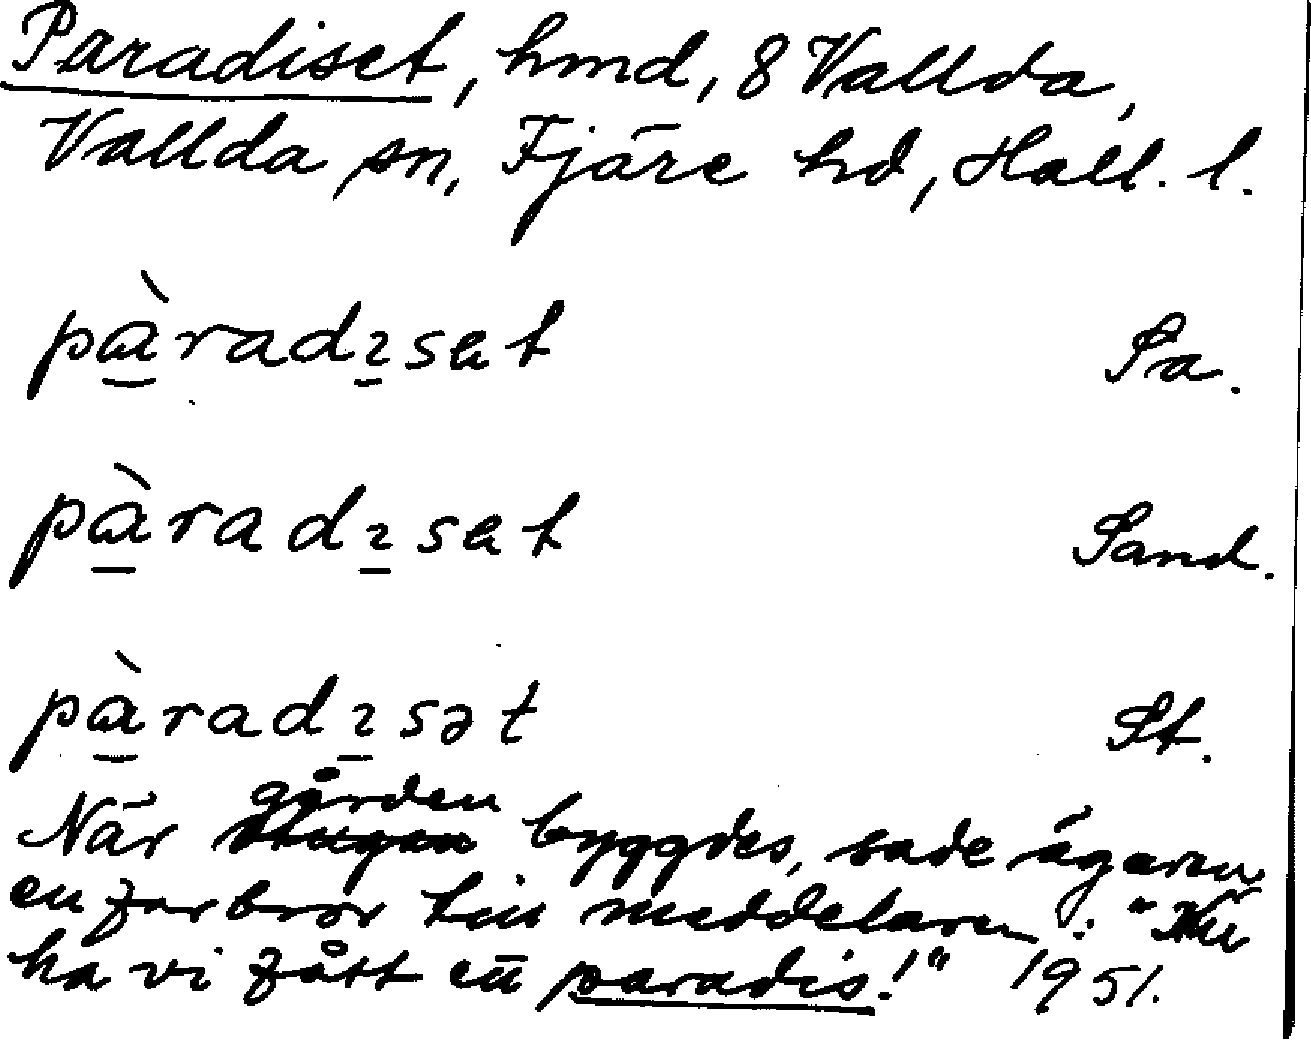 Paradiset, hmd, 8 Vallda,
Vallda sn, Fjäre hd, Hall. l.
pàradısat Sa.
pàradısat Sand.
pàradısət St.
gården
När stugan byggdes, sade ägaren,
en farbror till meddelaren: "Nu
ha vi fått ett paradis!" 1951.